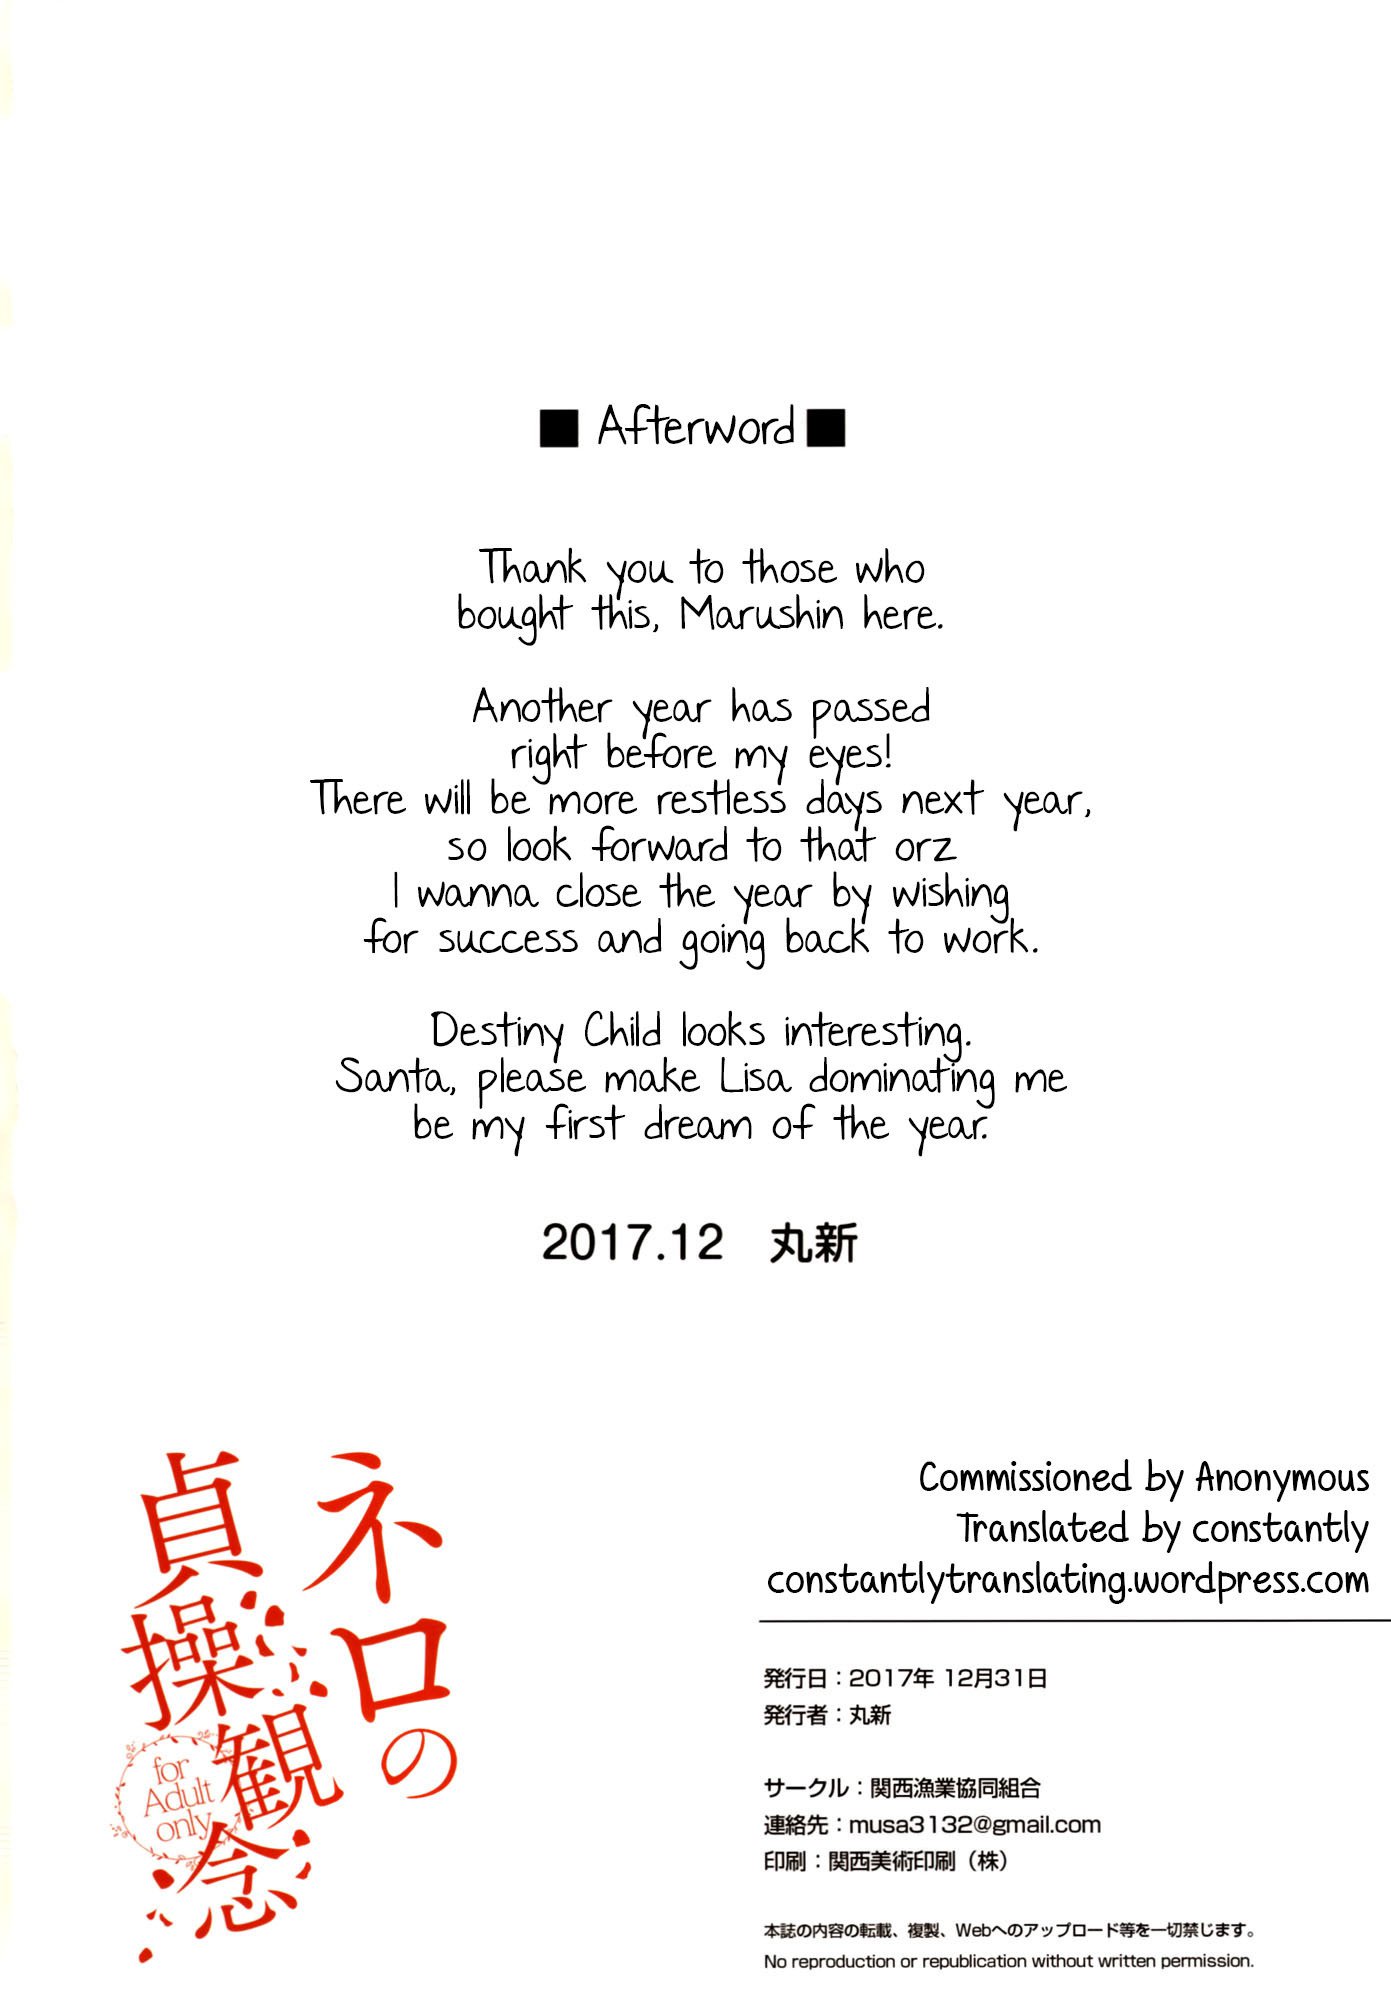 ■ Afterword ■
Thank you to those who
bought this, Marushin here.
Another year has passed
right before my eyes!
There will be more restless days next year,
so look forward to that orz
I wanna close the year by wishing
for success and going back to work.
Destiny Child looks interesting.
Santa, please make Lisa dominating me
be my first dream of the year.
2017.12 丸新
ネロの
貞操観念
for
Adult
only
Commissioned by Anonymous
Translated by constantly
constantlytranslating.wordpress.com
発行日：2017年 12月31日
発行者：丸新
サークル：関西漁業協同組合
連絡先：musa3132@gmail.com
印刷：関西美術印刷（株）
本誌の内容の転載、複製、Webへのアップロード等を一切禁じます。
No reproduction or republication without written permission.